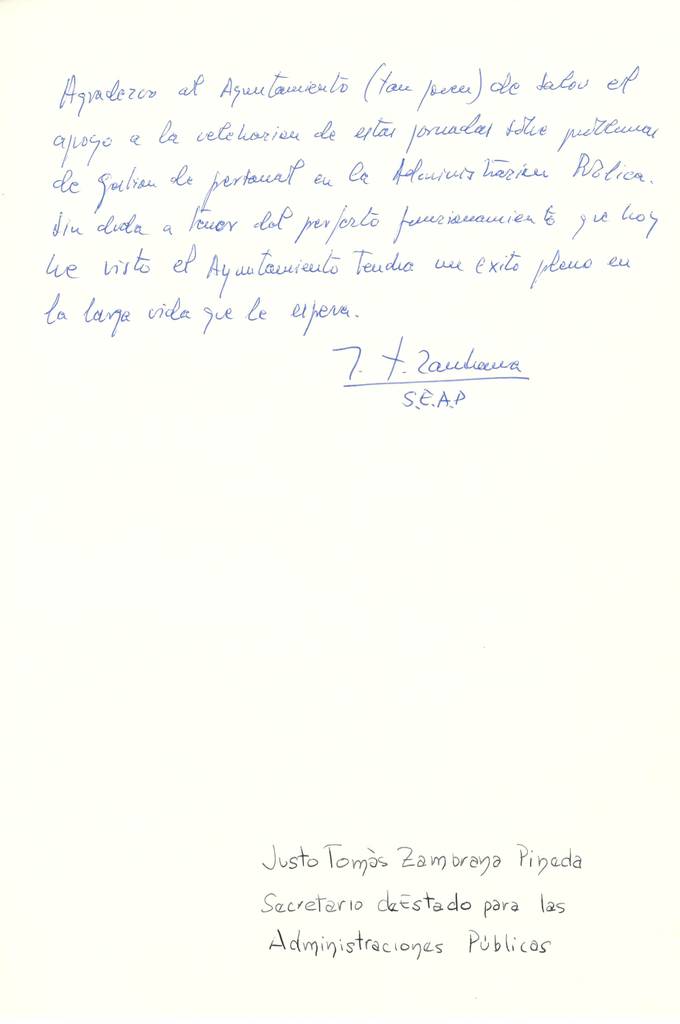 Agradezco al Ayuntamiento (tan joven) de Salou el
apoyo a la celebracion de estas jornadas sobre problemas
de gestion de personal en la Administracion Pública.
Sin duda a tenor del perfecto funcionamiento que hoy
he visto el Ayuntamiento tendra un exito pleno en
la larga vida que le espera.
J. T. Zambrana
S.E.A.P
Justo Tomàs Zambrana Pineda
Secretario de Estado para las
Administraciones Públicas